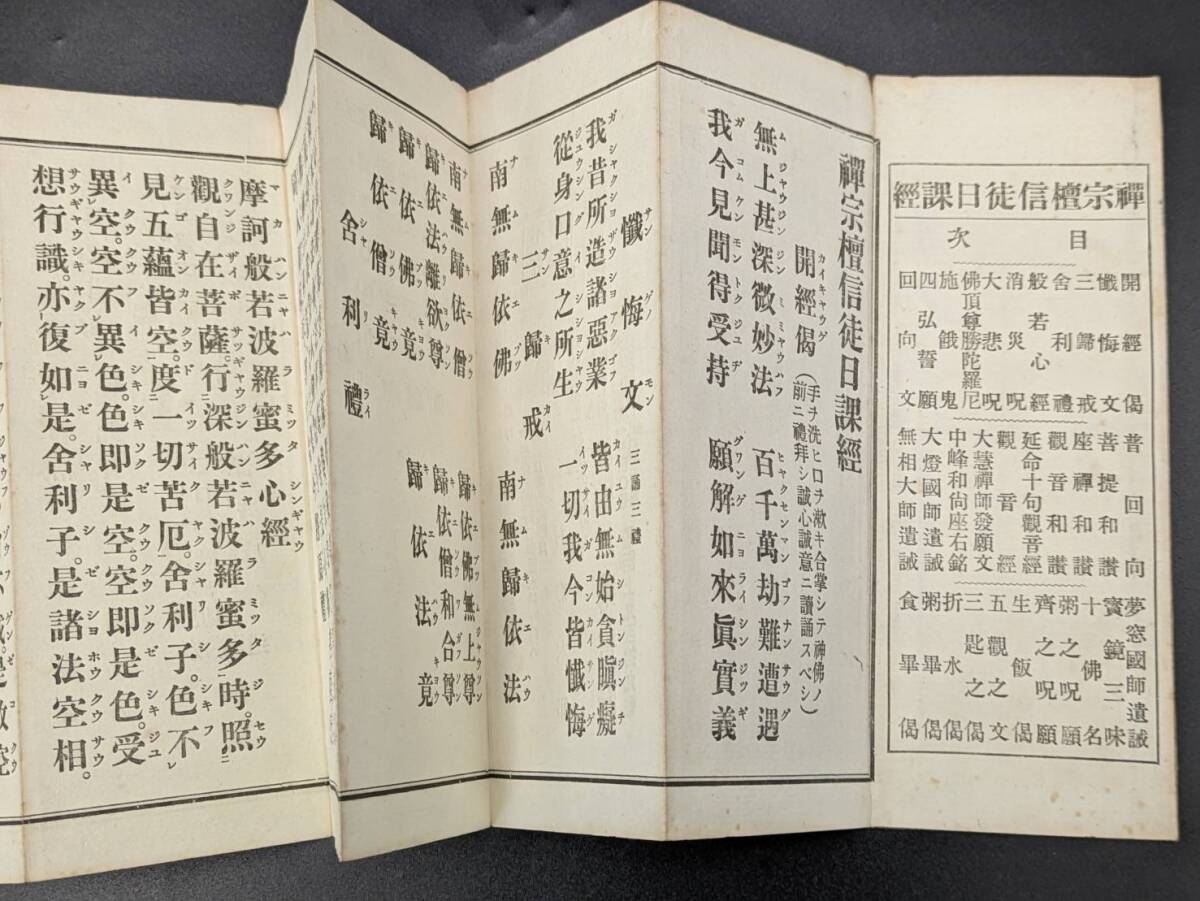 禪宗檀信徒日課經
目次
開經偈
懺悔文
三歸戒
舍利禮
般若心經
消災呪
大悲呪
佛頂尊勝陀羅尼
施餓鬼
四弘誓願
回向文
普回向
菩提和讃
座禪和讃
觀音和讃
延命十句觀音經
觀音經
大慧禪師發願文
中峰和尚座右銘
大燈國師遺誡
無相大師遺誡
夢窓國師遺誡
寳鏡三味
十佛名
粥之呪願
齊之呪願
生飯偈
五觀之文
三匙之偈
折水偈
粥畢偈
食畢偈
禪宗檀信徒日課經
開經偈(手ヲ洗ヒ口ヲ漱キ合掌シテ神佛ノ前ニ禮拜シ誠心誠意ニ讀誦スベシ)
無上甚深微妙法 百千萬劫難遭遇
我今見聞得受持 願解如來眞實義
懺悔文 三誦三禮
我昔所造諸惡業 皆由無始貪瞋癡
從身口意之所生 一切我今皆懺悔
三歸戒
南無歸依佛 南無歸依法
南無歸依僧 歸依佛無上尊
歸依法離欲尊 歸依僧和合尊
歸依佛竟 歸依法竟
歸依僧竟
舍利禮
摩訶般若波羅蜜多心經
觀自在菩薩。行深般若波羅蜜多時。照
見五蘊皆空。度一切苦厄。舍利子。色不
異空。空不異色。色即是空。空即是色。受
想行識。亦復如是。舍利子。是諸法空相。